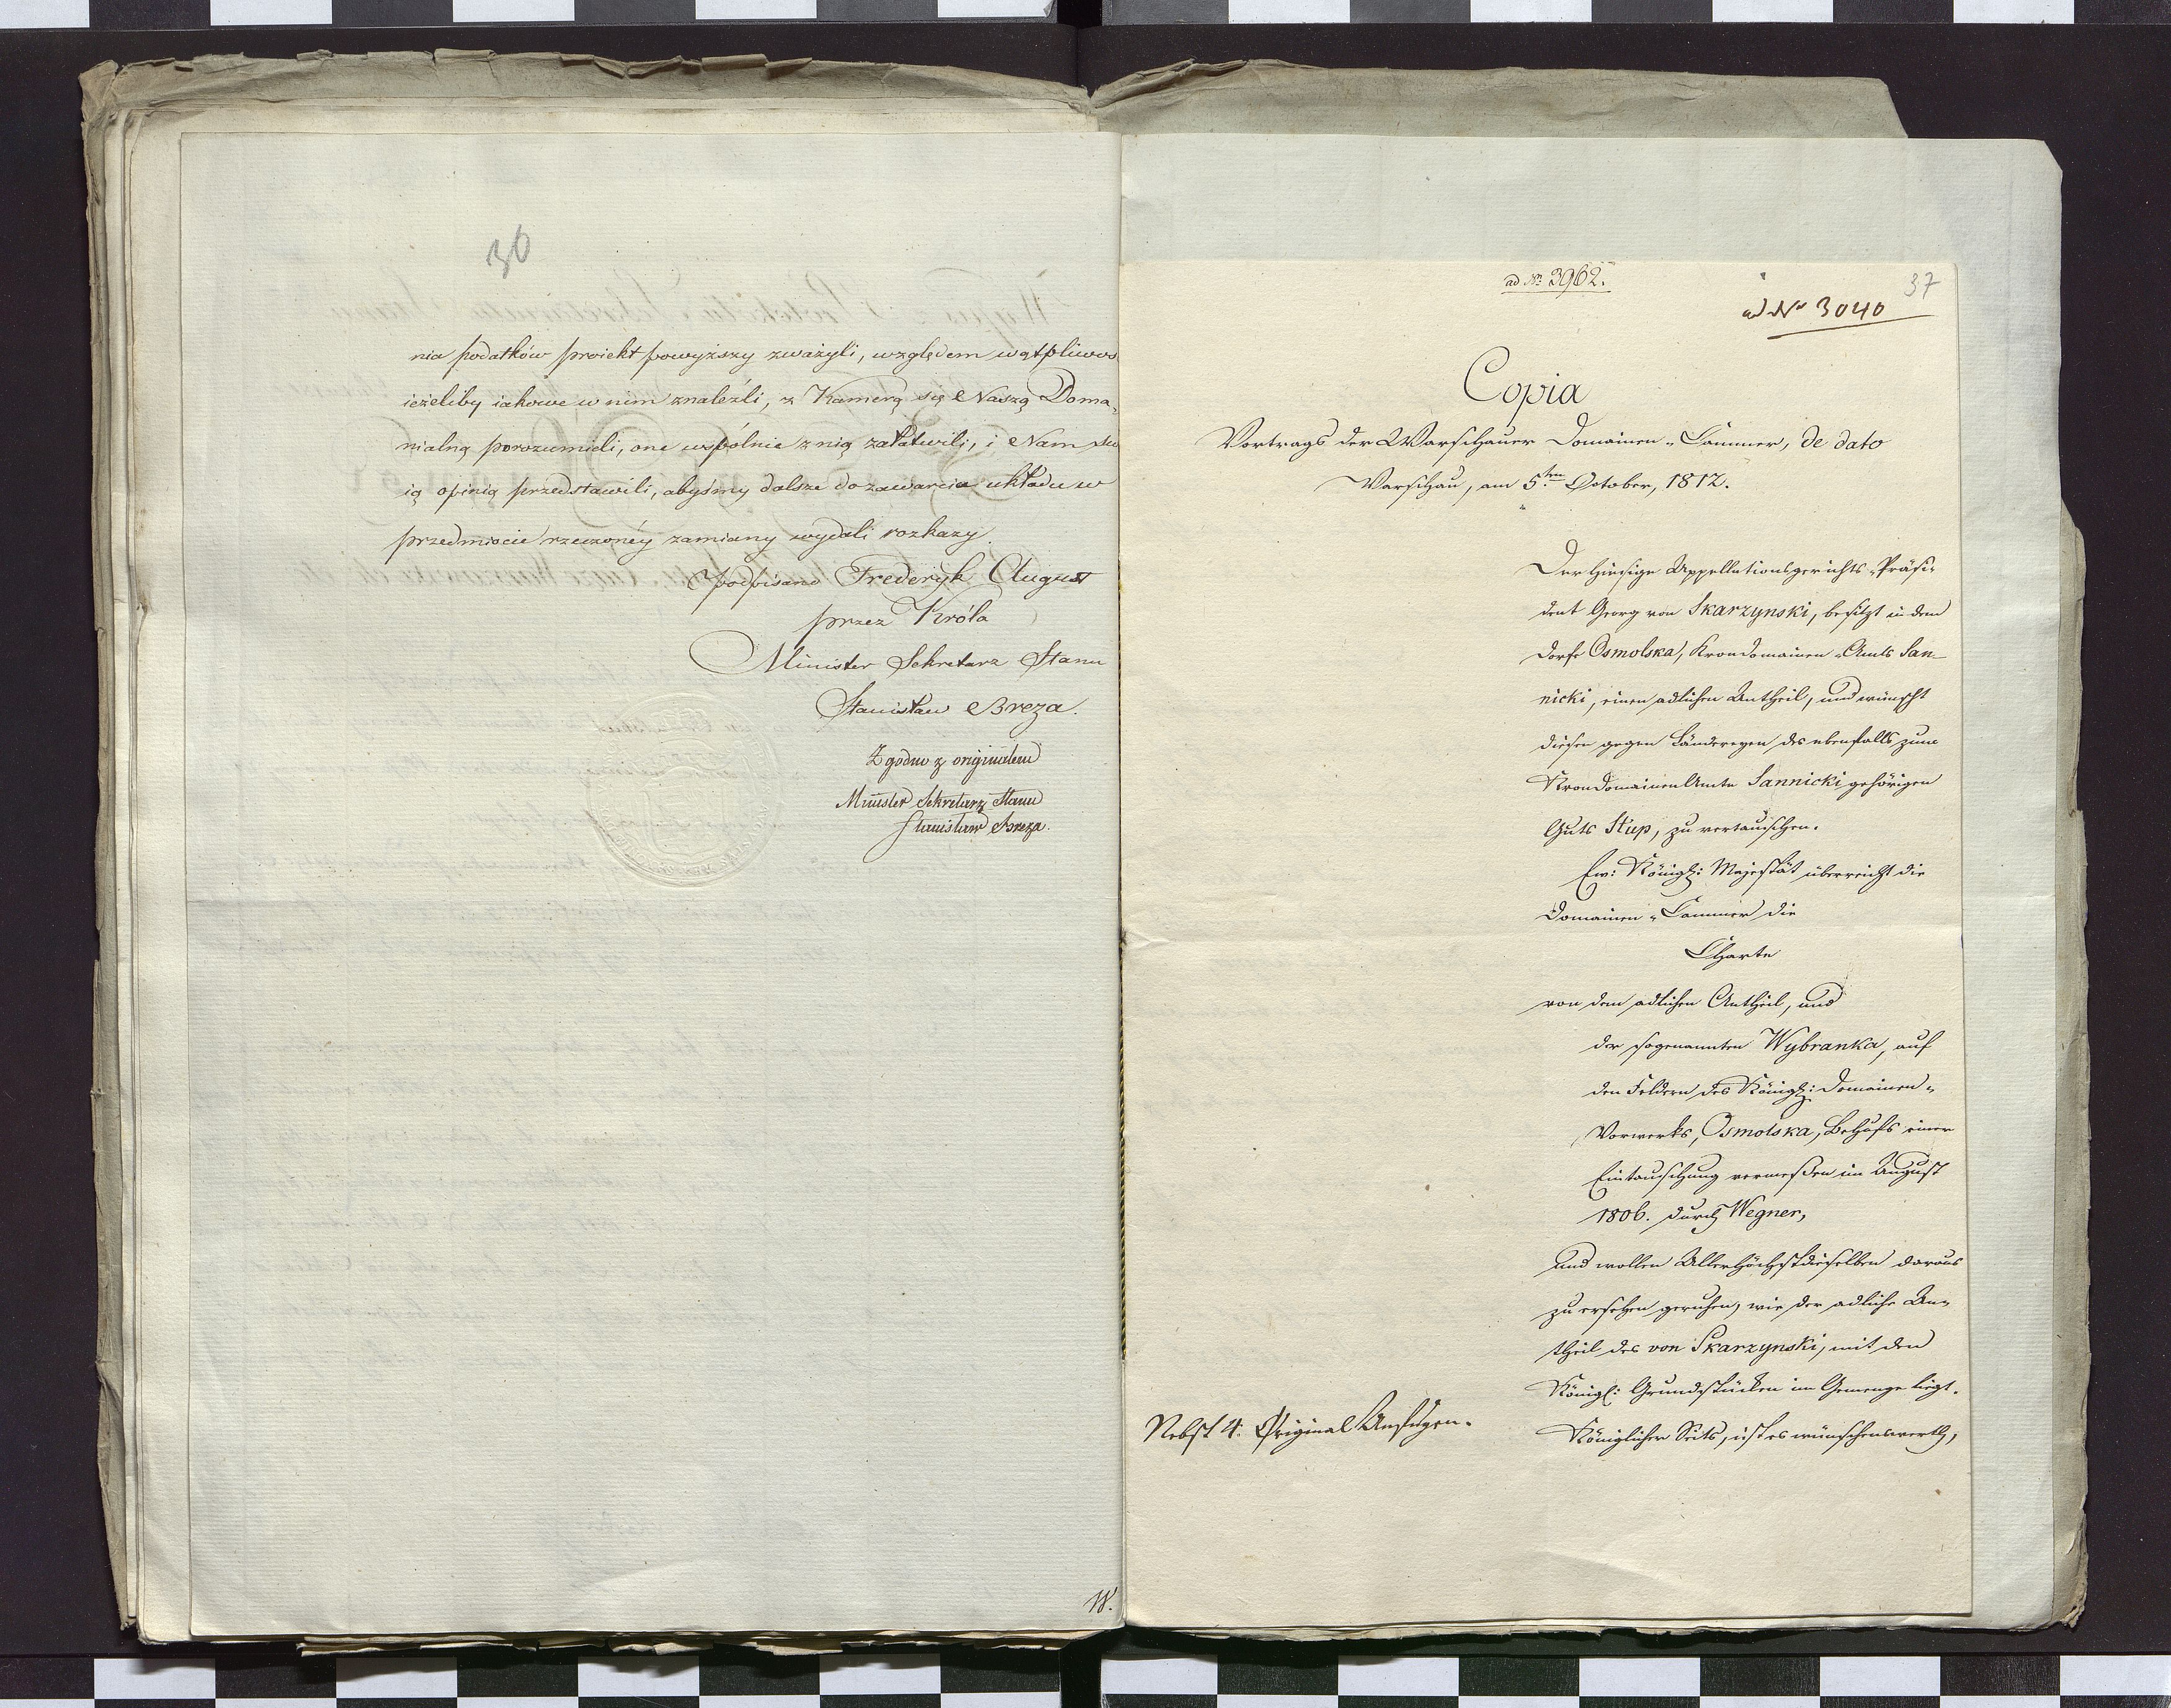 36
nia podatków proiekt powyższy zważyli, względem wątpliwoś
ieżeliby iakowe w nim znaleźli, z Kamerą się Naszą Doma,
nialną porozumieli, one wspólnie z nią załatwili, i Nam swo
ią opinią przedstawili, abyśmy dalsze do zawarcia układu w
przedmiocie rzeczonéy zamiany wydali rozkazy.
Podpisano Frederyk August
przez Króla
Minister Sekretarz Stanu
Stanisław Breza.
Zgodno z originałem
Minister Sekretarz Stanu
Stanisław Breza.
W.
37
ad No 3962.
ad No 3040
Copia
Vortrags der Warschauer Domainen-Cammer, de dato
Warschau, am 5ten October, 1812.
Der hiesige Appellationsgerichts-Präsi-
dent Georg von Skarzynski, besitzt in dem
Dorfe Osmolska, Krondomainen-Amts San-
nicki, einen adlichen Antheil, und wünscht
diesen gegen Ländereyen des ebenfalls zum
Krondomainen Amte Sannicki gehörigen
Guts Słup, zu vertauschen.
Ew: Königl: Majestät überreicht die
Domainen-Cammer die
Charte
von dem adlichen Antheil, und
der sogenannten Wybranka, auf
den Feldern des Königl: Domainen-
Vorwerks, Osmolska, Behufs einer
Eintauschung vermeßen im August
1806. durch Wegner,
und wollen Allerhöchstdieselben daraus
zu ersehen geruhen, wie der adliche An-
theil des von Skarzynski, mit den
Königl: Grundstücken im Gemenge liegt.
Nebst 4. Original Anfugen.
Königlicher Seits, ist es wünschenswerth,